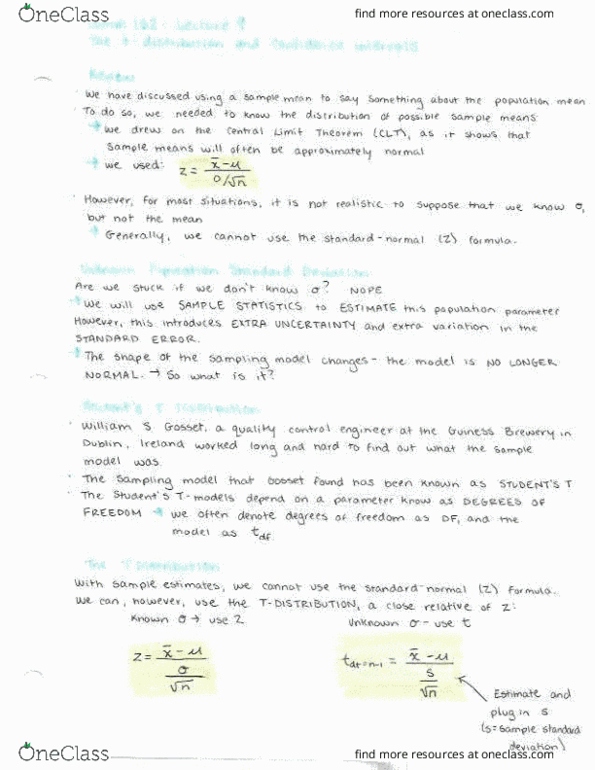 OneClass
find more resources at oneclass.com
Lecture 9
The t-distribution and confidence intervals
Review
We have discussed using a sample mean to say something about the population mean
To do so, we needed to know the distribution of possible sample means.
→ We drew on the Central Limit Theorem (CLT), as it shows that
sample means will often be approximately normal
→ we used: z = x̄-μ / σ/√n
However, for most situations, it is not realistic to suppose that we know σ,
but not the mean
→ Generally, we cannot use the standard-normal (Z) formula.
Unknown Population Standard Deviation
Are we stuck if we don't know σ? NOPE
→ We will use SAMPLE STATISTICS to ESTIMATE this population parameter
However, this introduces EXTRA UNCERTAINTY and extra variation in the
STANDARD ERROR.
→ The shape of the sampling model changes - the model is NO LONGER
NORMAL. → So what is it?
Student's T Distribution
William S Gosset, a quality control engineer at the Guiness Brewery in
Dublin, Ireland worked long and hard to find out what the sample
model was.
The sampling model that Gosset found has been known as STUDENT'S T
The Student's T-models depend on a parameter know as DEGREES OF
FREEDOM → we often denote degrees of freedom as DF, and the
model as tdf.
The T Distribution
With sample estimates, we cannot use the standard-normal (Z) formula.
We can, however, use the T-DISTRIBUTION, a close relative of Z:
Known σ → use Z Unknown σ - use t
z = x̄-μ / σ/√n tdf=n-1 = x̄-μ / s/√n
Estimate and
plug in s
(s=sample standard
deviation)
OneClass
find more resources at oneclass.com